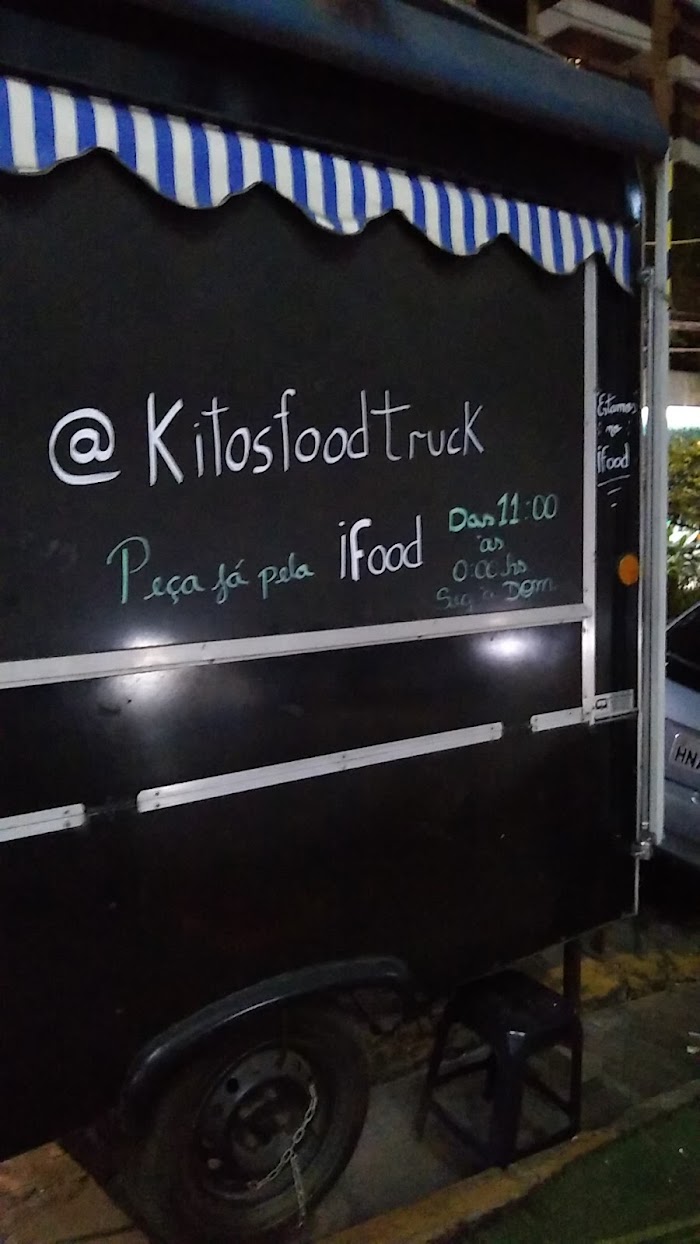 @Kitosfoodtruck
Peça já pela iFood
Das 11:00
as
0:00 hs
Seg a Dom
Estamos
no
iFood
HN